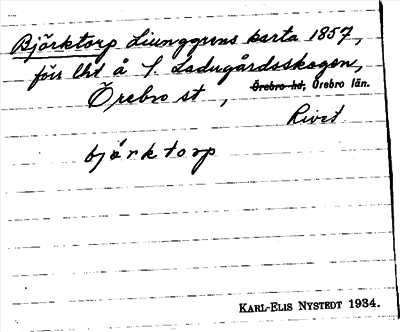 Björktorp Ljunggrens karta 1857,
förr lht å f. Ladugårdsskogen,
Örebro st, Örebro hd, Örebro län.
Rivet
björktorp
KARL-ELIS NYSTEDT 1934.